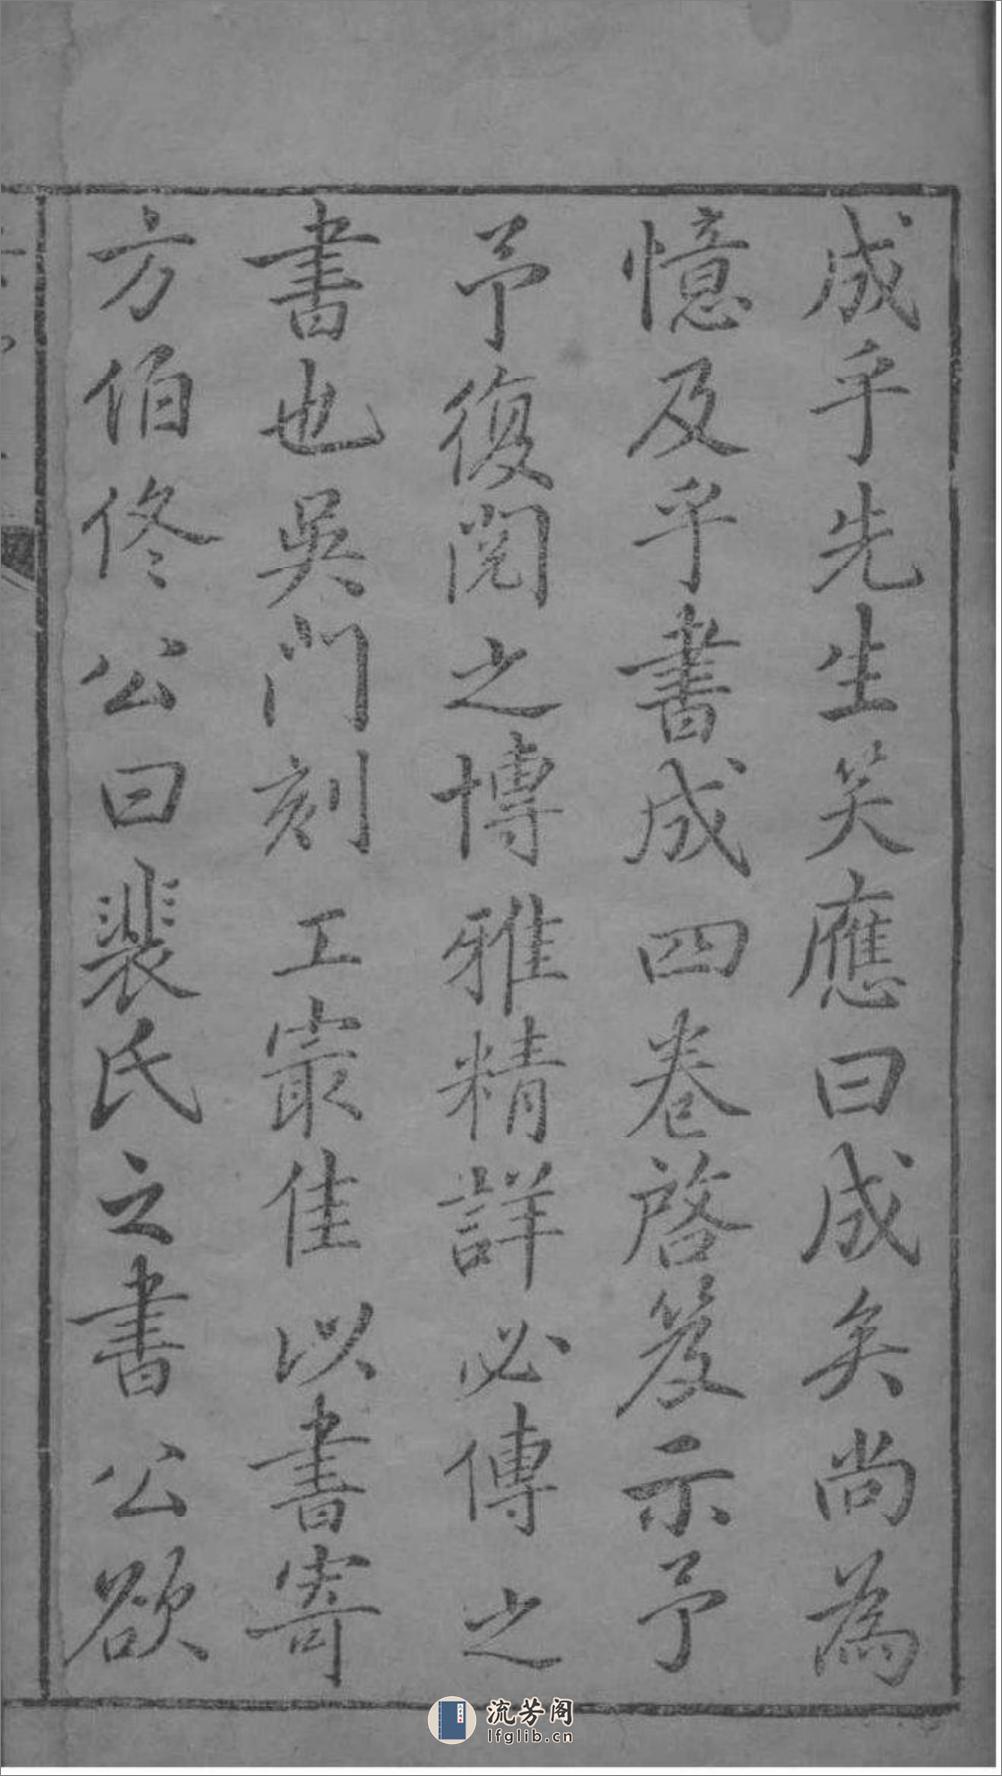 成乎先生笑應曰成矣尚為
憶及乎書成四卷啓笈示予
予復閱之博雅精詳必傳之
書也吳門刻工㝡佳以書寄
方伯佟公曰裴氏之書公欲
流芳阁
lfglib.cn